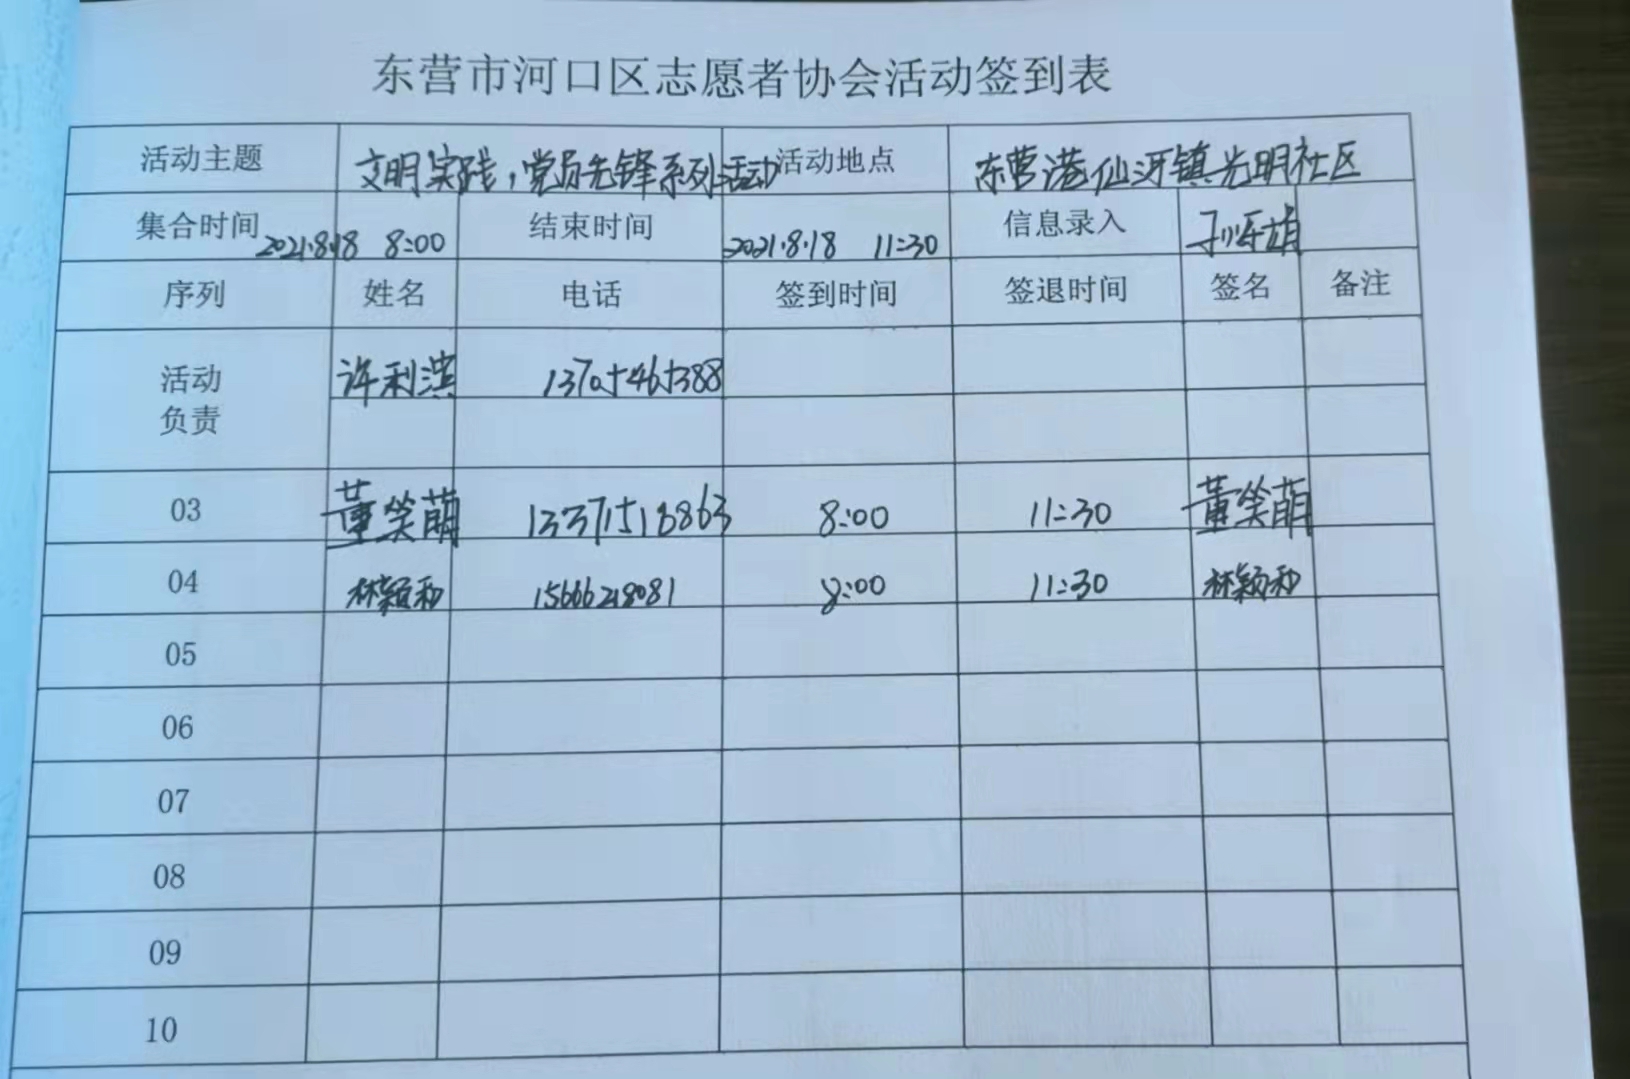 东营市河口区志愿者协会活动签到表
活动主题 文明实践，党员先锋系列活动 活动地点 东营港仙河镇光明社区
集合时间 2021.8.18 8:00 结束时间 2021.8.18 11:30 信息录入
序列 姓名 电话 签到时间 签退时间 签名 备注
活动
负责
许利滨 13705465388
03 董笑萌 13371518863 8:00 11:30 董笑萌
04 林颖和 15666218081 8:00 11:30 林颖和
05
06
07
08
09
10